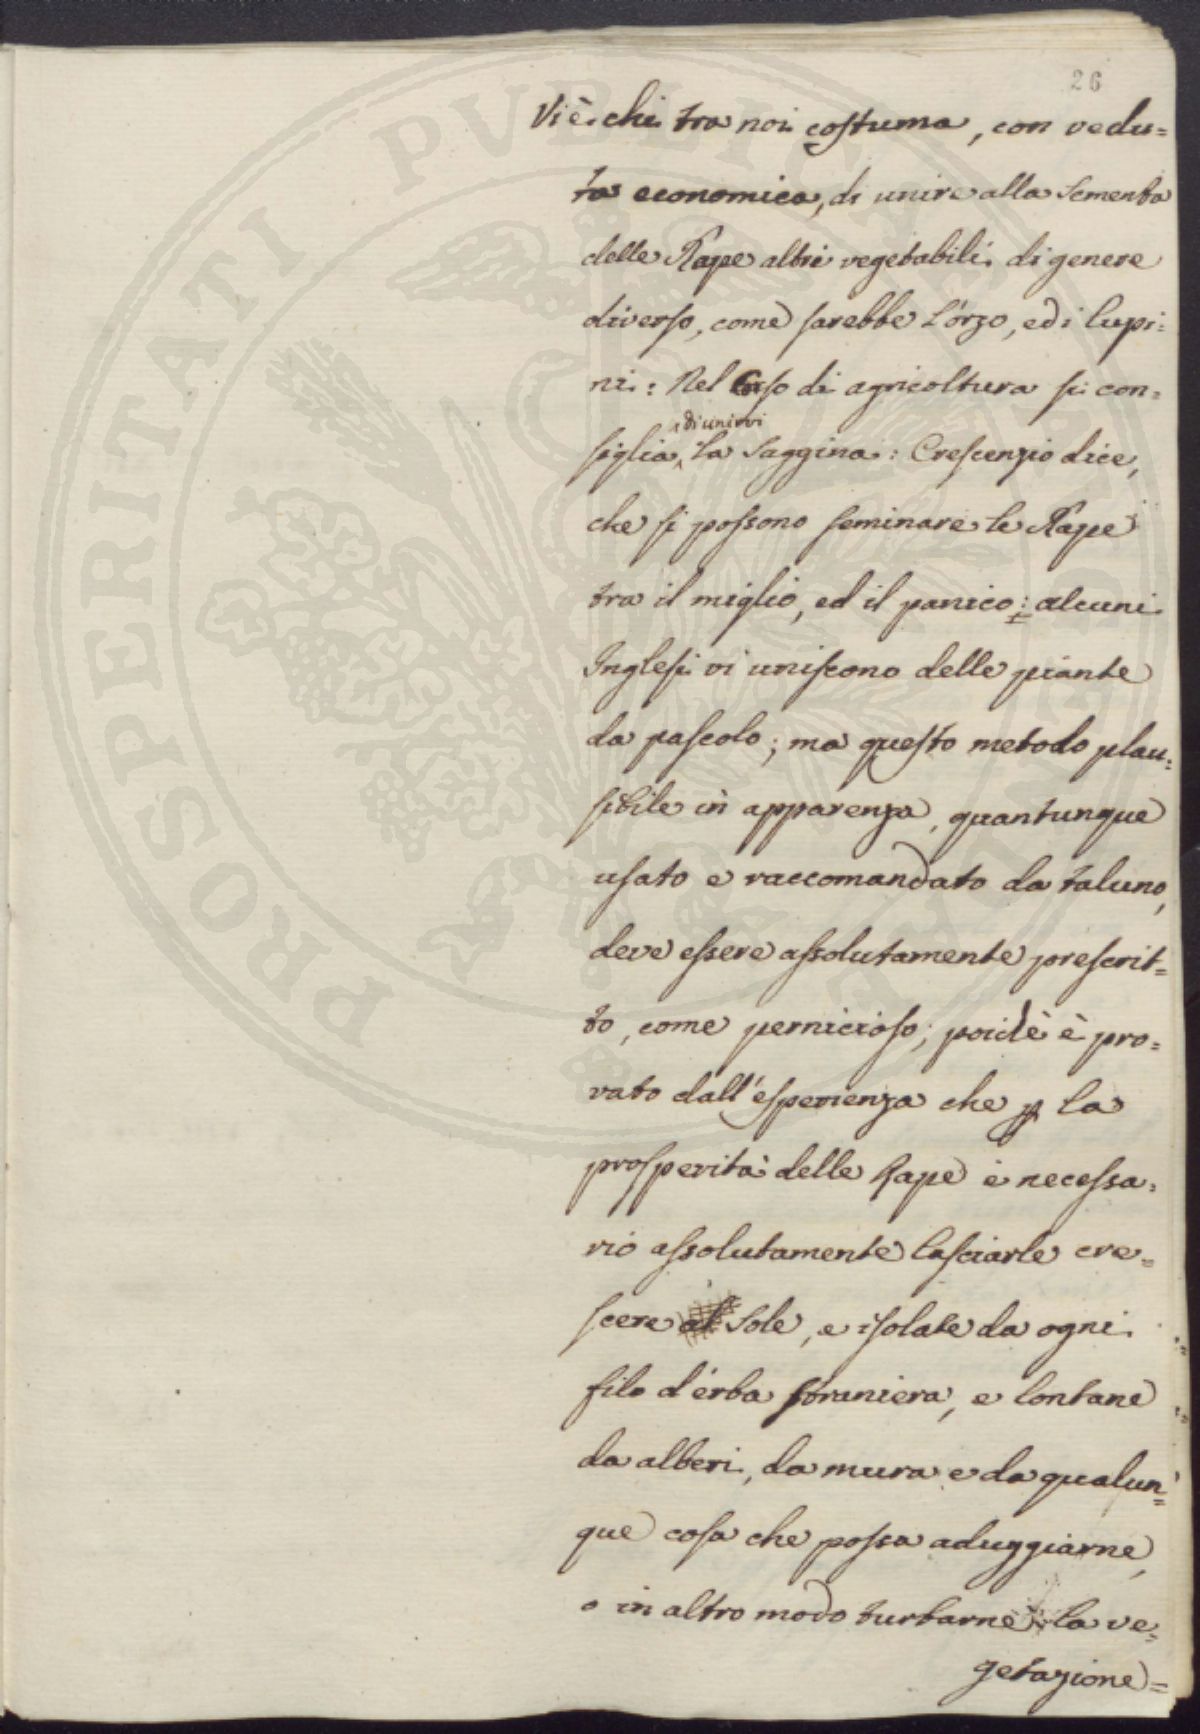 26
Vi è chi tra noi costuma, con vedu=
ta economica, di unire alla Sementa
delle Rape altri vegetabili di genere
diverso, come sarebbe l'órzo, ed i lupi=
ni: Nel Corso di agricoltura si con=
di unirvi
siglia la Saggina: Crescenzio dice,
che si possono seminare le Rape
tra il miglio, ed il panico: alcuni
Inglesi vi uniscono delle piante
da pascolo; ma questo metodo plau=
sibile in apparenza, quantunque
usato e raccomandato da taluno,
deve essere assolutamente prescrit=
to, come pernicioso; poichè è pro=
vato dall'esperienza che p la
prosperità delle Rape è necessa=
rio assolutamente lasciarle cre=
scere al Sole, e isolate da ogni
filo d'érba straniera, e lontane
da alberi, da mura e da qualun=
que cosa che possa aduggiarne,
o in altro modo turbarne la ve=
getazione=
PROSPERITATI PUBLICAE AUGENDAE